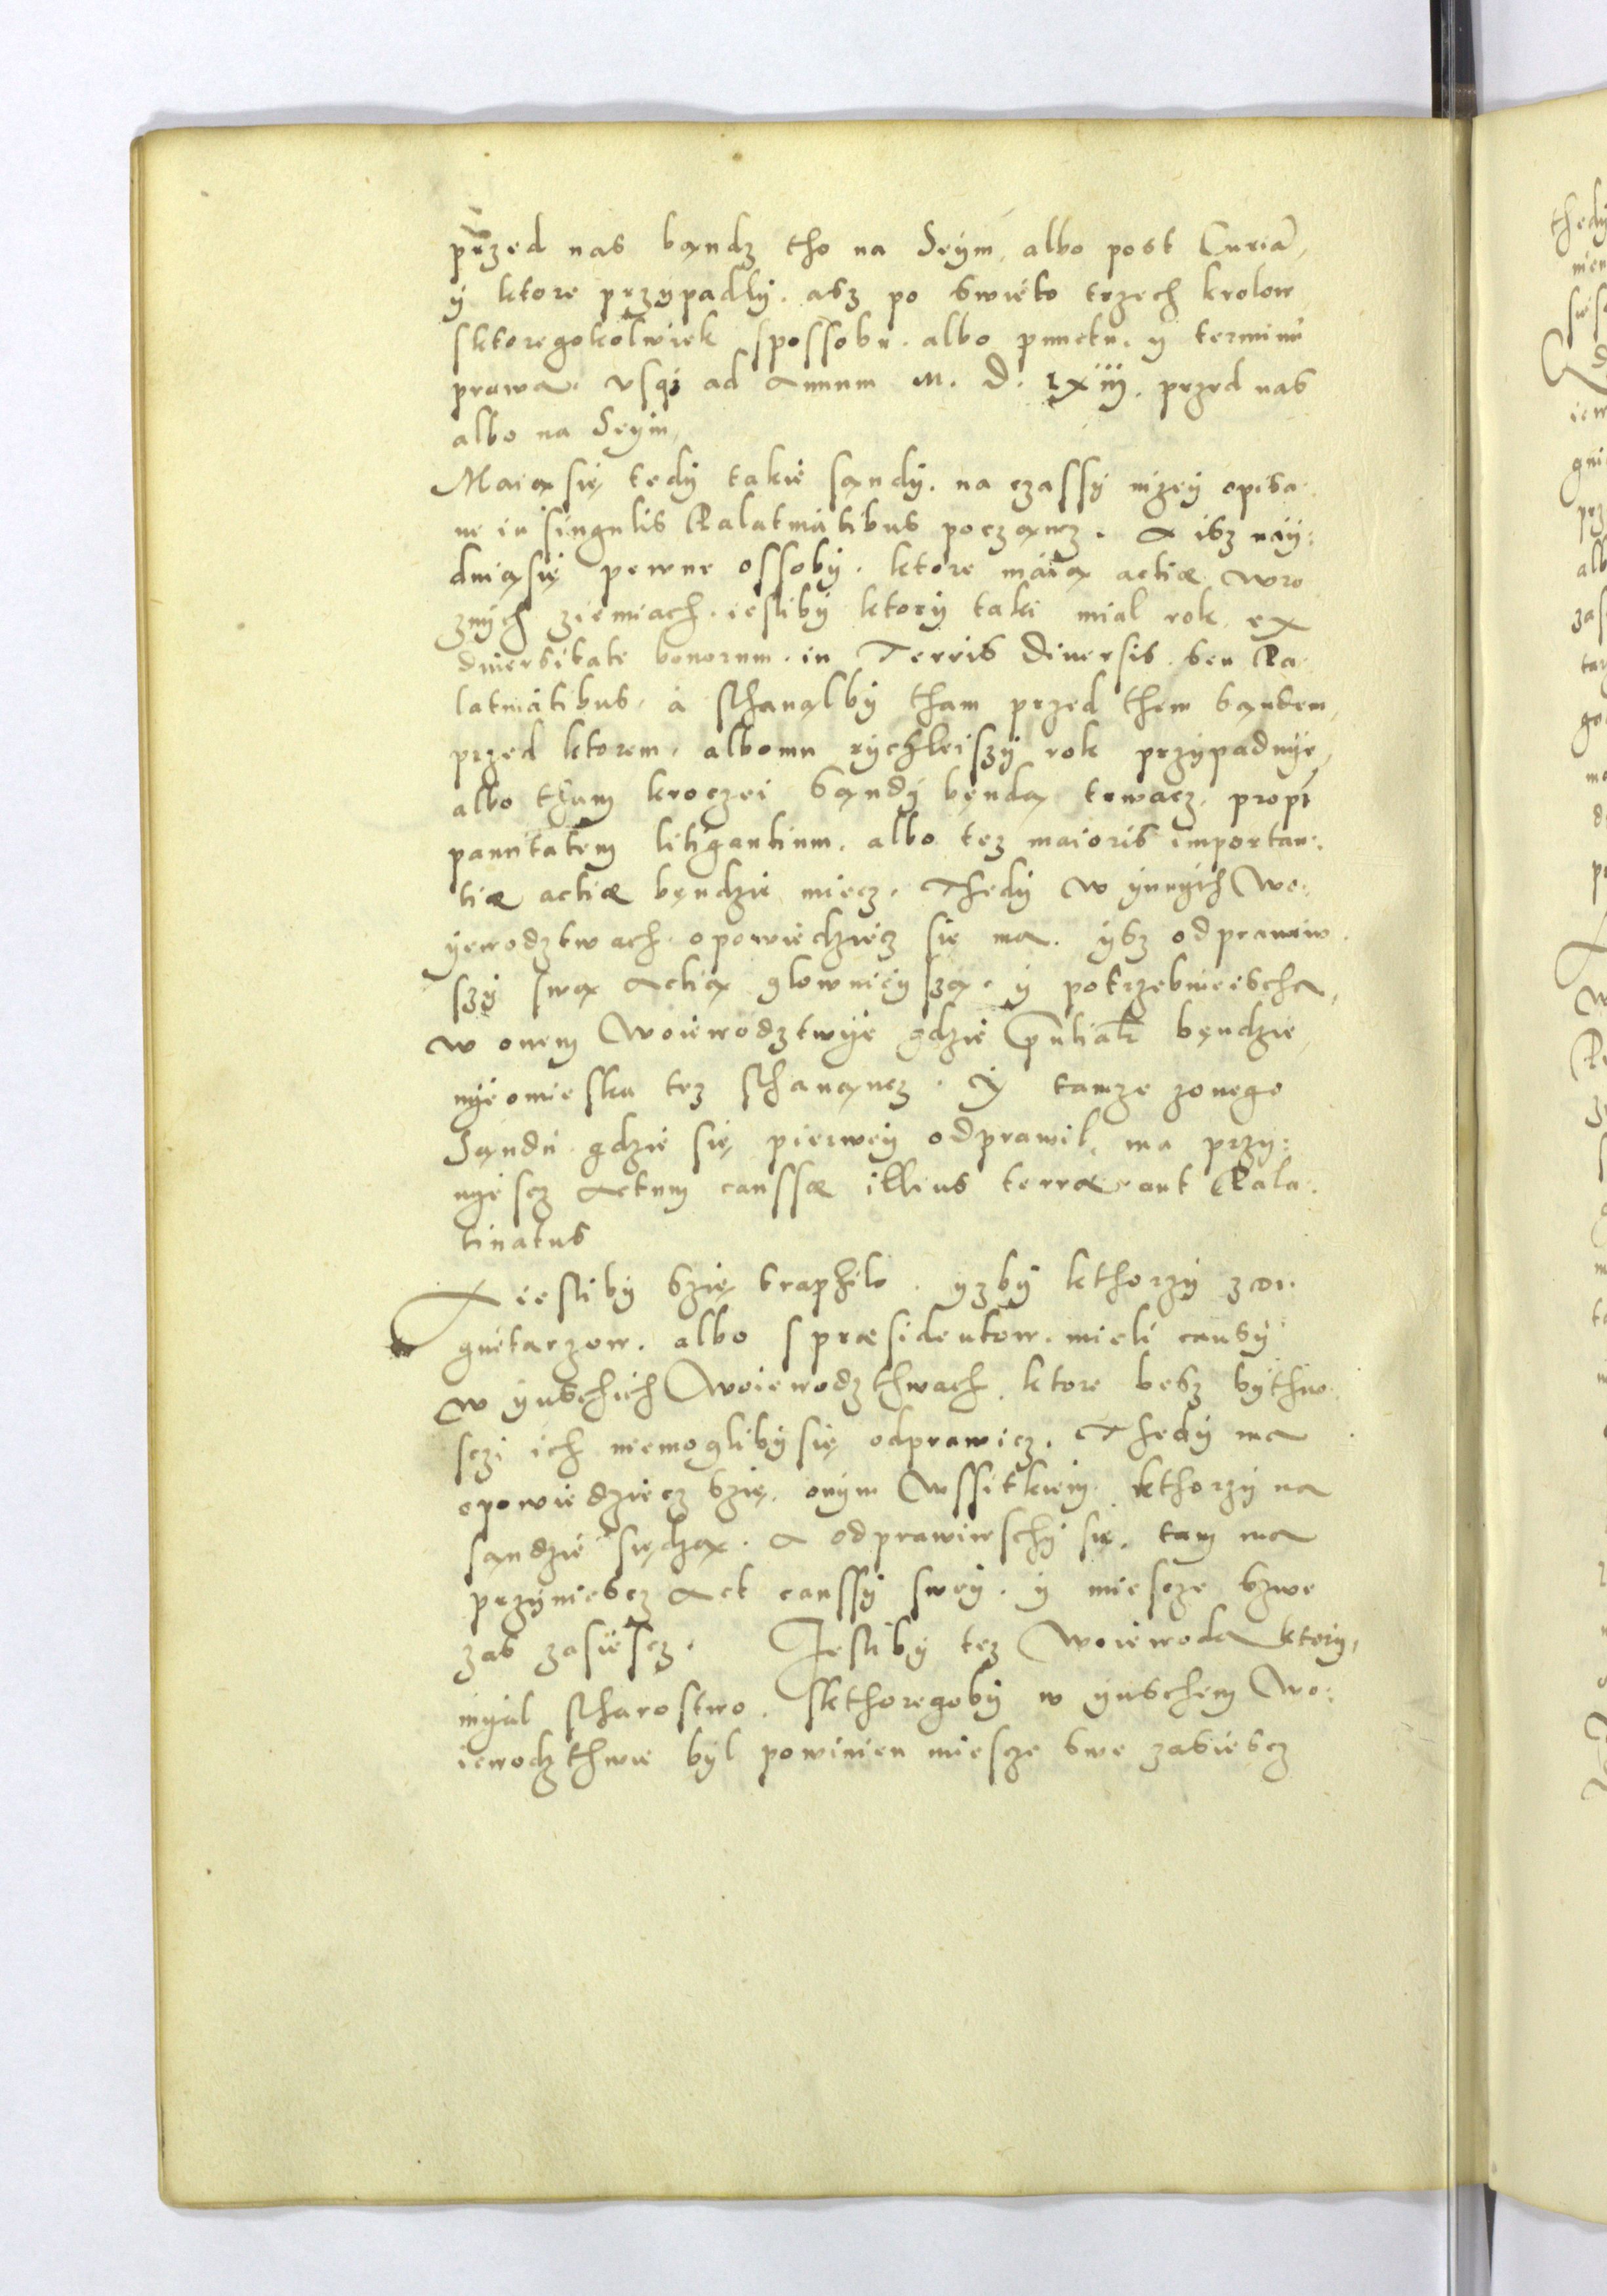 przed nas bąndz tho na Seÿm, albo post Curiã,
ÿ ktore przypadlÿ. asz po swiéto trzech krolow
sktoregokolwiek spossobu. albo punctu. y terminu
prawa. vsqz ad Annum M. D. LXiij. przed nas
albo na Seÿm,
Maią się tedÿ takie sąndÿ. na czassÿ nizeÿ opisa:
ne in singulis Palatinatibus począcz. A isz naÿ:
dniąsię pewne ossobÿ. ktore maią actiæ wro
znÿch ziemiach. iestlibÿ ktorÿ taki mial rok ex
diuersitate bonorum. in Terris Diuersis. seu Pa:
latinatibus, a sthanąlbÿ tham przed them sąndem,
przed ktorem, albomu rÿchleiszÿ rok przÿpadnÿe,
albo tham kroczei sąndÿ będą trwacz, propt
paucitatem litigantium. albo tez maioris importan:
tiæ actiæ bęndzie miecz. Thedÿ w ÿnnÿch Wo:
ÿewodztwach opowiedziecz się ma. ÿsz odprawiw
szÿ swą Actią glownieÿszą. ÿ potrzebnieischą,
w onem Woiewodztwÿe gdzie bęndzie,
nÿeomieska tez sthanącz. Ÿ tamze zonego
Sąndu gdzie się pierweÿ odprawil, ma przÿ:
nÿescz Actum caussæ illius terræ aut Pala:
tinatus
A iestlibÿ szię traphilo. ÿzbÿ kthorzÿ zdi:
gnitarzow. albo spræsidentow. mieli causÿ
w ÿnschich Woiewodzthwach, ktore besz bÿthno:
sczi ich niemoglibÿ się odprawicz. Thedÿ ma
opowiedziecz szię, onÿm wssitkiem kthorzÿ na
sąndzie siędzą. A odprawiwschÿ się, tam ma
przÿniescz Act caussÿ sweÿ. ÿ miescze szwe
zas zasiescz. Jestlibÿ tez Woiewoda ktorÿ,
mÿal stharostwo. skthoregobÿ w ÿnschem Wo:
iewodzthwie bÿl powinien miescze swe zasiescz